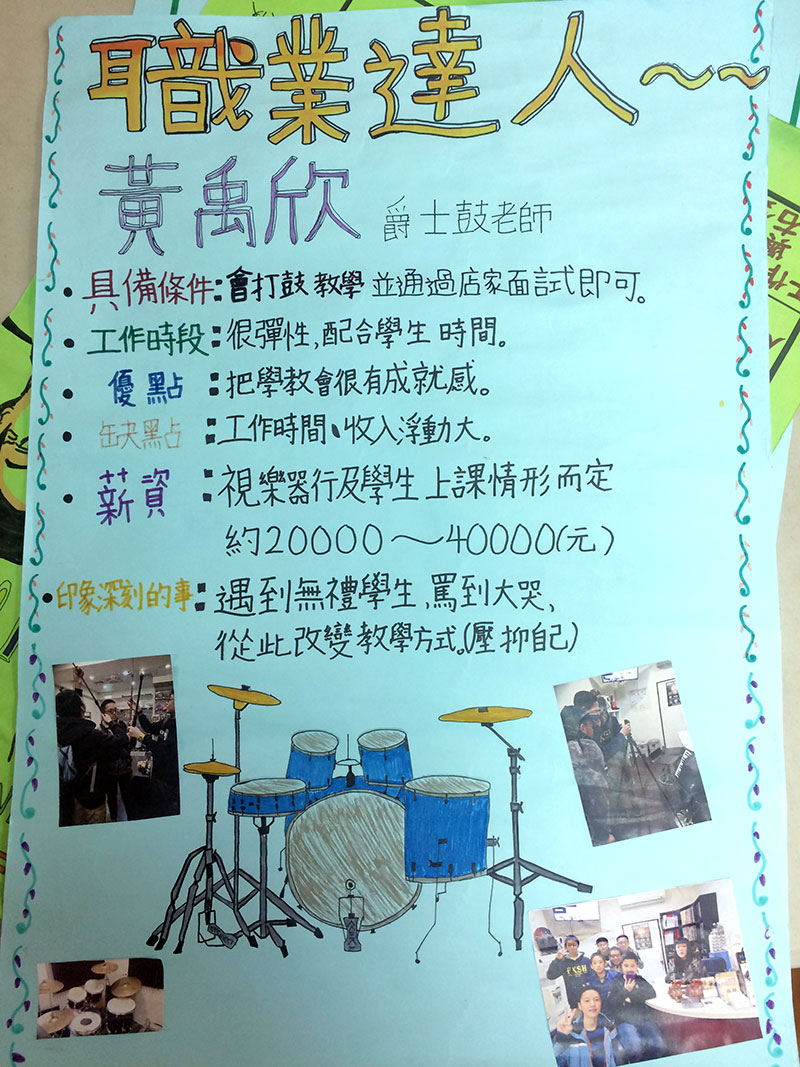 職業達人~~
黃禹欣 爵士鼓老師
•具備條件:會打鼓教學並通過店家面試即可。
•工作時段:很彈性,配合學生時間。
•優點:把學教會很有成就感。
•缺點:工作時間、收入浮動大。
•薪資:視樂器行及學生上課情形而定
約20000~40000(元)
•印象深刻的事:遇到無禮學生,罵到大哭、
從此改變教學方式。(壓抑自己)
FXSH
工作